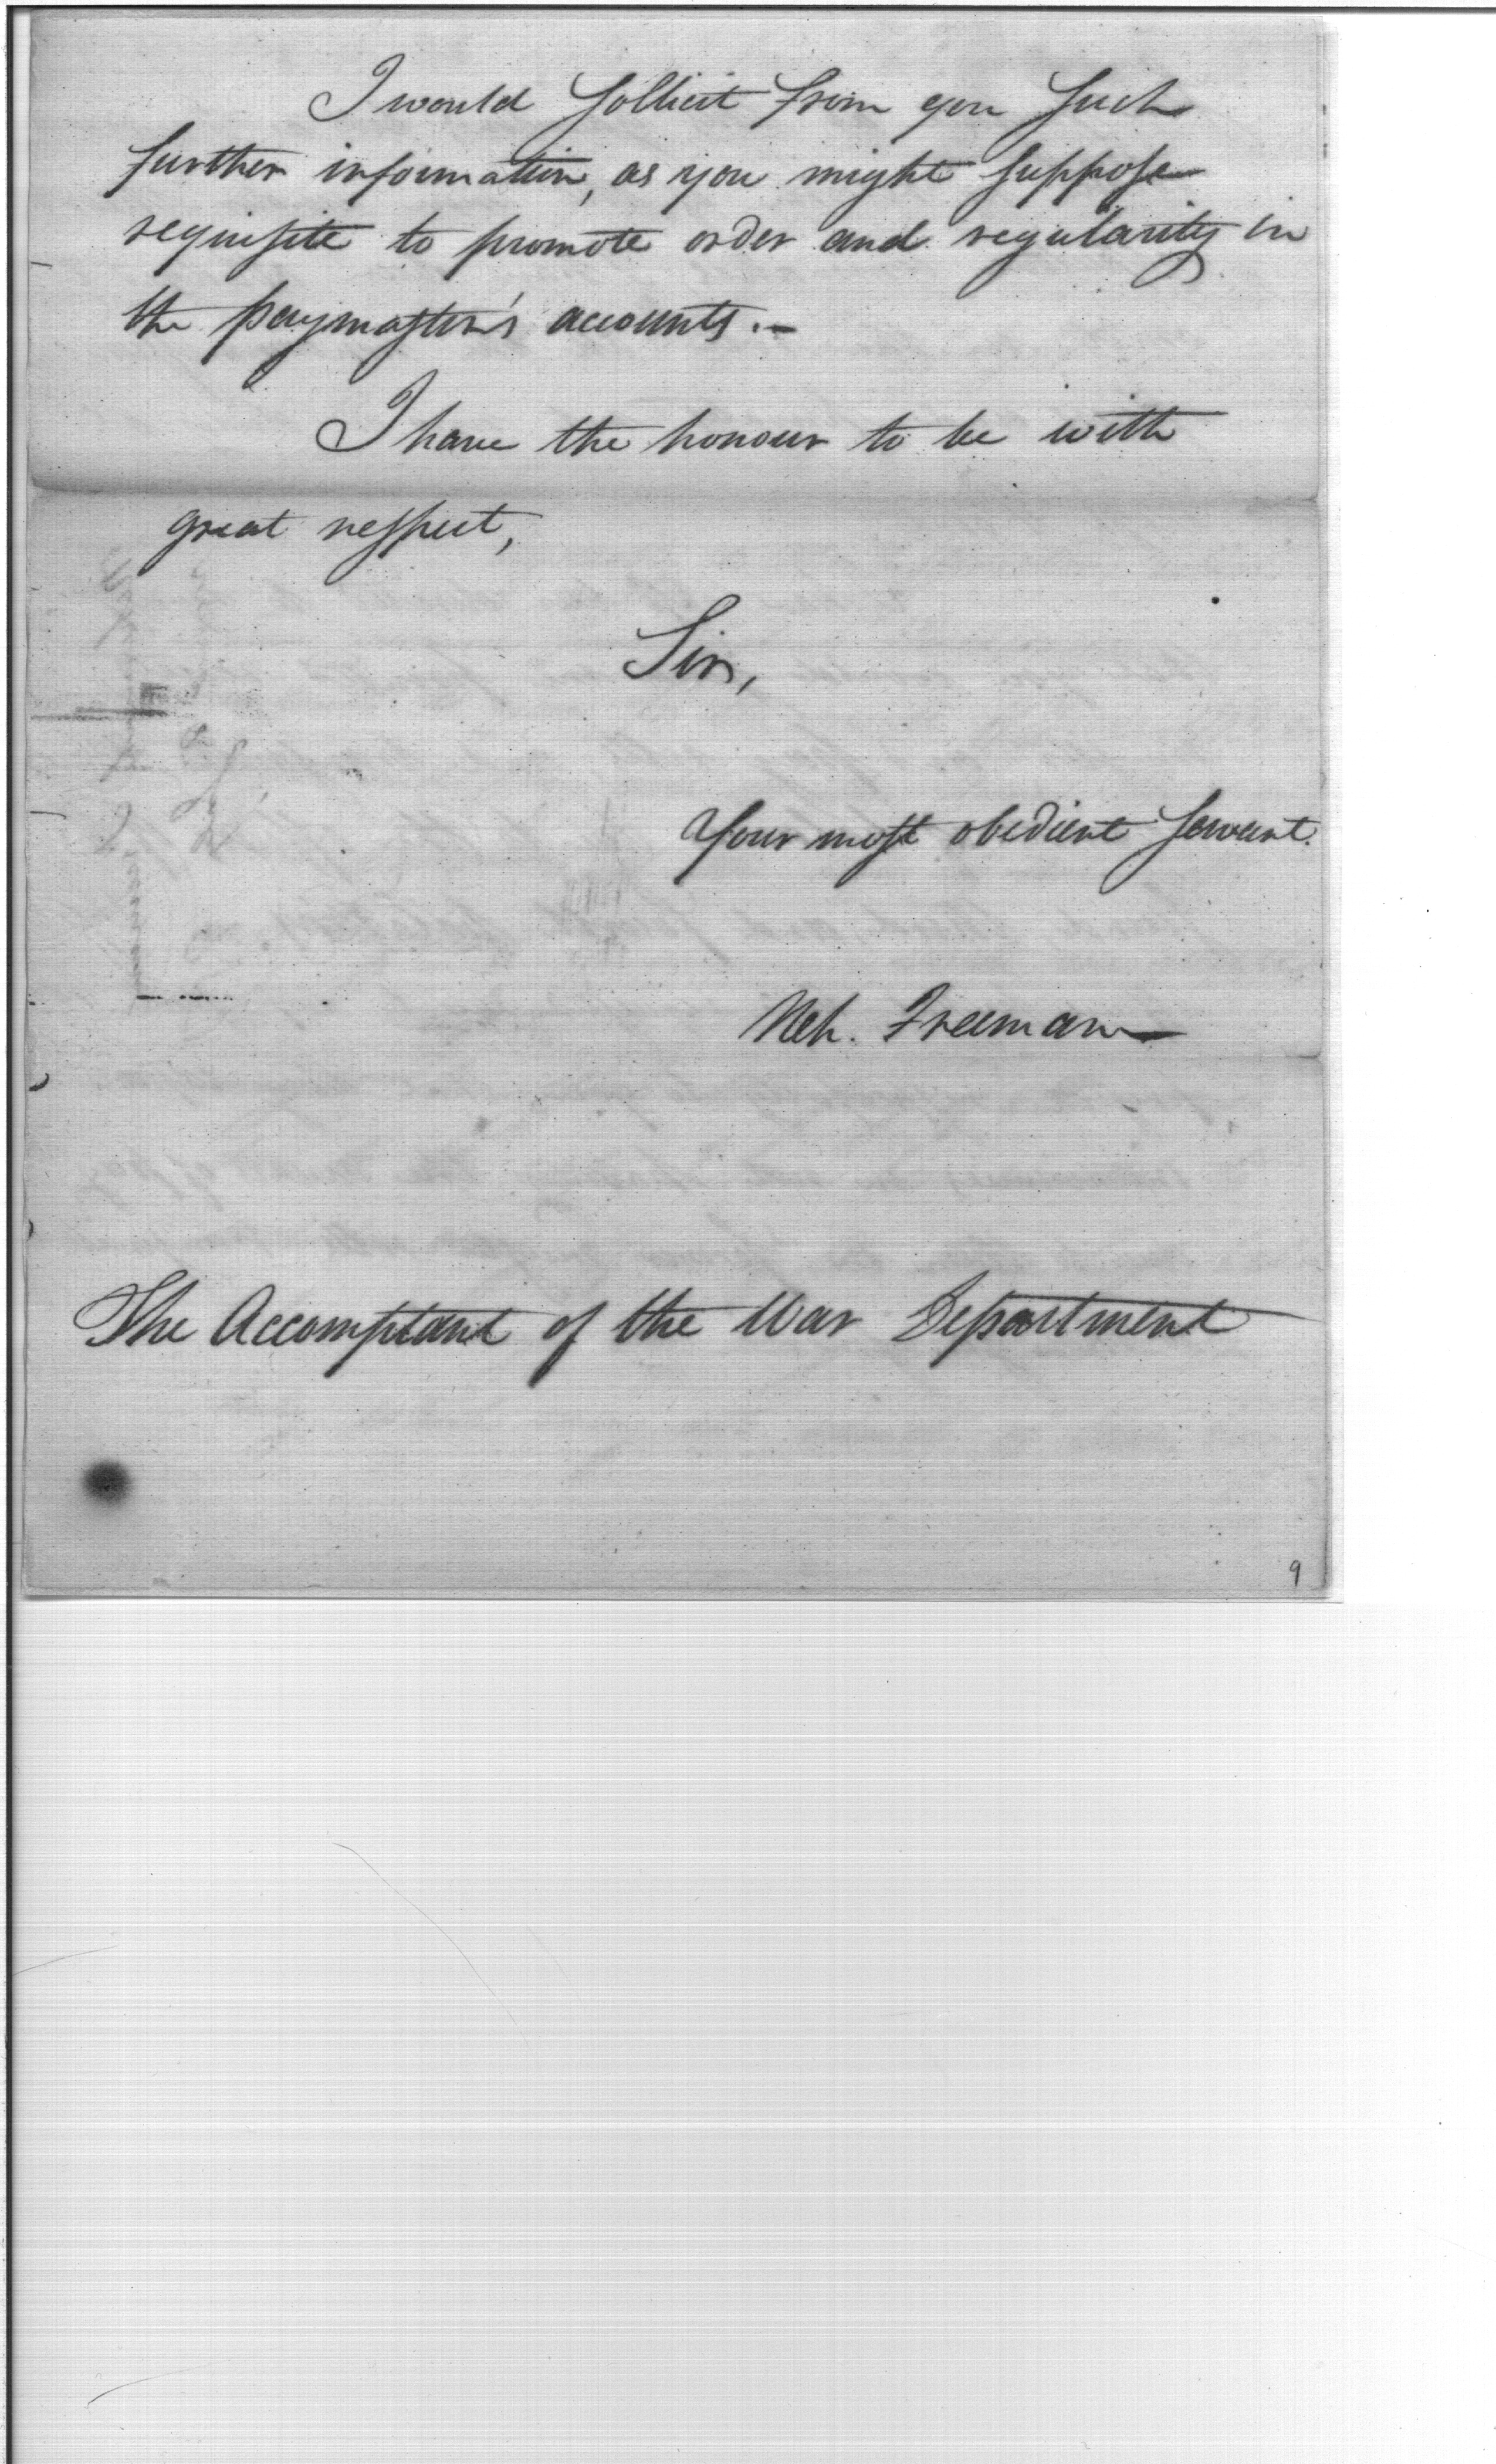 I would sollicit from you such
further information, as you might suppose
requisite to promote order and regularity in
the paymaster's accounts.—
I have the honour to be with
great respect,
Sir,
Your most obedient servant.
Neh. Freeman
The Accomptant of the War Department
9